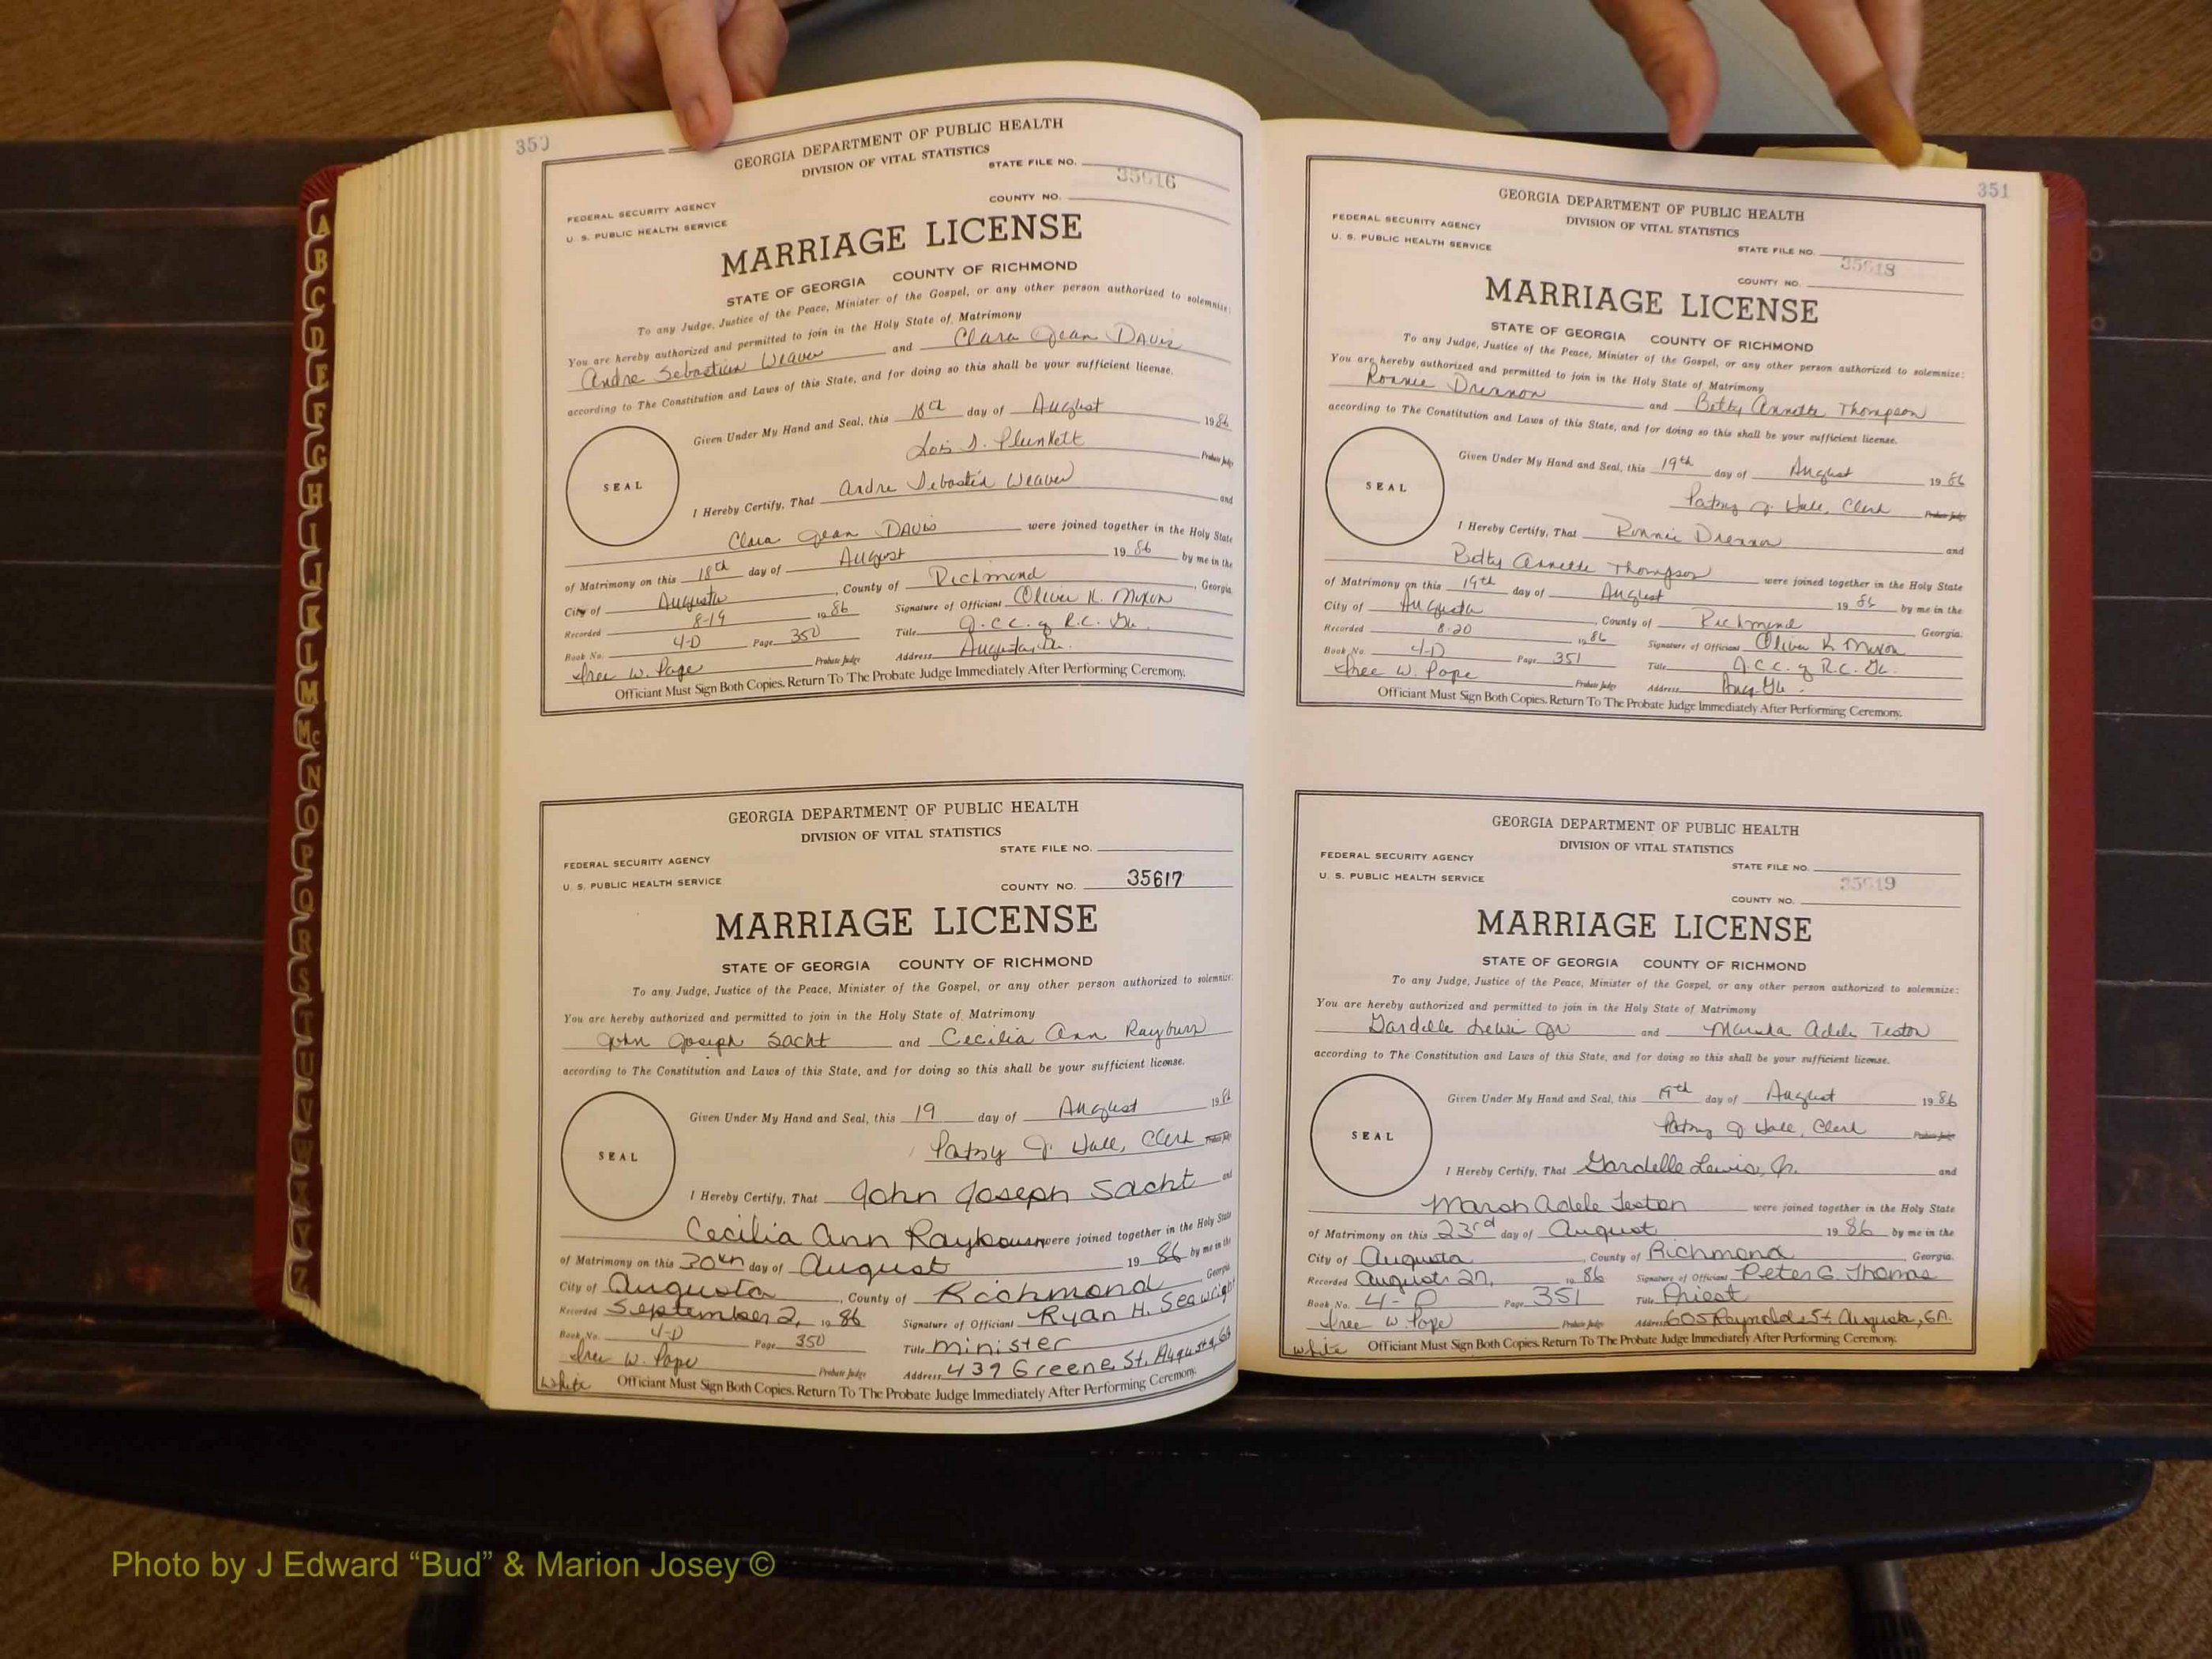 350
GEORGIA DEPARTMENT OF PUBLIC HEALTH
DIVISION OF VITAL STATISTICS
STATE FILE NO.
35616
FEDERAL SECURITY AGENCY
COUNTY NO.
U. S. PUBLIC HEALTH SERVICE
MARRIAGE LICENSE
STATE OF GEORGIA COUNTY OF RICHMOND
To any Judge, Justice of the Peace, Minister of the Gospel, or any other person authorized to solemnize:
You are hereby authorized and permitted to join in the Holy State of Matrimony
Andre Sebastian Weaver and Clara Jean Davis
according to The Constitution and Laws of this State, and for doing so this shall be your sufficient license.
Given Under My Hand and Seal, this 18th day of August 1986
Lois I. Plunkett
Probate Judge
SEAL
I Hereby Certify, That Andre Sebastin Weaver and
Clara Jean Davis were joined together in the Holy State
of Matrimony on this 18th day of August 19 86 by me in the
City of Augusta, County of Richmond, Georgia.
Recorded 8-19 19 86 Signature of Officiant Oliver K. Mixon
Book No. 4-D Page 350 Title J.C.C. of R.C. Ga.
Iree W. Pope Probate Judge Address Augusta, Ga.
Officiant Must Sign Both Copies. Return To The Probate Judge Immediately After Performing Ceremony.
GEORGIA DEPARTMENT OF PUBLIC HEALTH
DIVISION OF VITAL STATISTICS
STATE FILE NO.
FEDERAL SECURITY AGENCY
U. S. PUBLIC HEALTH SERVICE
COUNTY NO. 35617
MARRIAGE LICENSE
STATE OF GEORGIA COUNTY OF RICHMOND
To any Judge, Justice of the Peace, Minister of the Gospel, or any other person authorized to solemnize:
You are hereby authorized and permitted to join in the Holy State of Matrimony
John Joseph Sacht and Cecilia Ann Rayburn
according to The Constitution and Laws of this State, and for doing so this shall be your sufficient license.
Given Under My Hand and Seal, this 19 day of August 1986
Patsy J. Hall, Clerk Probate Judge
SEAL
I Hereby Certify, That John Joseph Sacht and
Cecilia Ann Raybourn were joined together in the Holy State
of Matrimony on this 30th day of August 19 86 by me in the
City of Augusta, County of Richmond, Georgia.
Recorded September 2, 19 86 Signature of Officiant Ryan H. Seawright
Book No. 4-D Page 350 Title minister
Iree W. Pope Probate Judge Address 439 Greene St. Augusta, GA
white Officiant Must Sign Both Copies. Return To The Probate Judge Immediately After Performing Ceremony.
351
GEORGIA DEPARTMENT OF PUBLIC HEALTH
DIVISION OF VITAL STATISTICS
FEDERAL SECURITY AGENCY
U. S. PUBLIC HEALTH SERVICE
STATE FILE NO.
35618
COUNTY NO.
MARRIAGE LICENSE
STATE OF GEORGIA COUNTY OF RICHMOND
To any Judge, Justice of the Peace, Minister of the Gospel, or any other person authorized to solemnize:
You are hereby authorized and permitted to join in the Holy State of Matrimony
Ronnie Drennon and Betty Annette Thompson
according to The Constitution and Laws of this State, and for doing so this shall be your sufficient license.
Given Under My Hand and Seal, this 19th day of August 1986
Patsy J. Hall, Clerk Probate Judge
SEAL
I Hereby Certify, That Ronnie Drennon and
Betty Annette Thompson were joined together in the Holy State
of Matrimony on this 19th day of August 19 86 by me in the
City of Augusta, County of Richmond Georgia.
Recorded 8-20 19 86 Signature of Officiant Oliver K Mixon
Book No. 4-D Page 351 Title J.C.C. of R.C. Ga.
Iree W. Pope Probate Judge Address Aug. Ga.
Officiant Must Sign Both Copies. Return To The Probate Judge Immediately After Performing Ceremony.
GEORGIA DEPARTMENT OF PUBLIC HEALTH
DIVISION OF VITAL STATISTICS
FEDERAL SECURITY AGENCY
U. S. PUBLIC HEALTH SERVICE
STATE FILE NO.
35619
COUNTY NO.
MARRIAGE LICENSE
STATE OF GEORGIA COUNTY OF RICHMOND
To any Judge, Justice of the Peace, Minister of the Gospel, or any other person authorized to solemnize:
You are hereby authorized and permitted to join in the Holy State of Matrimony
Gardelle Lewis Jr and Adele Teston
according to The Constitution and Laws of this State, and for doing so this shall be your sufficient license.
Given Under My Hand and Seal, this 19th day of August 1986
Patsy J Hall, Clerk Probate Judge
SEAL
I Hereby Certify, That Gardelle Lewis, Jr. and
Adele Teston were joined together in the Holy State
of Matrimony on this 23rd day of August 19 86 by me in the
City of Augusta, County of Richmond Georgia.
Recorded August 27, 19 86 Signature of Officiant Peter G. Thomas
Book No. 4-D Page 351 Title Priest
Iree W. Pope Probate Judge Address 605 Reynolds St. Augusta, GA.
white Officiant Must Sign Both Copies. Return To The Probate Judge Immediately After Performing Ceremony.
A
B
C
D
E
F
G
H
I
J
K
L
M
Mc
N
O
P
Q
R
S
T
U
V
W
X
Y
Z
Photo by J Edward “Bud” & Marion Josey ©